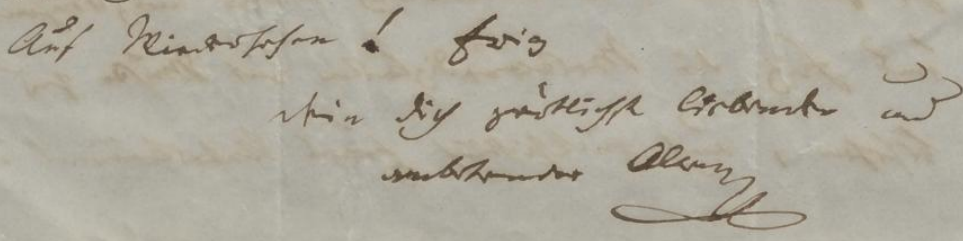 Auf Wiedersehen! Ewig
Dein Dich zärtlichst liebender und
anbetender